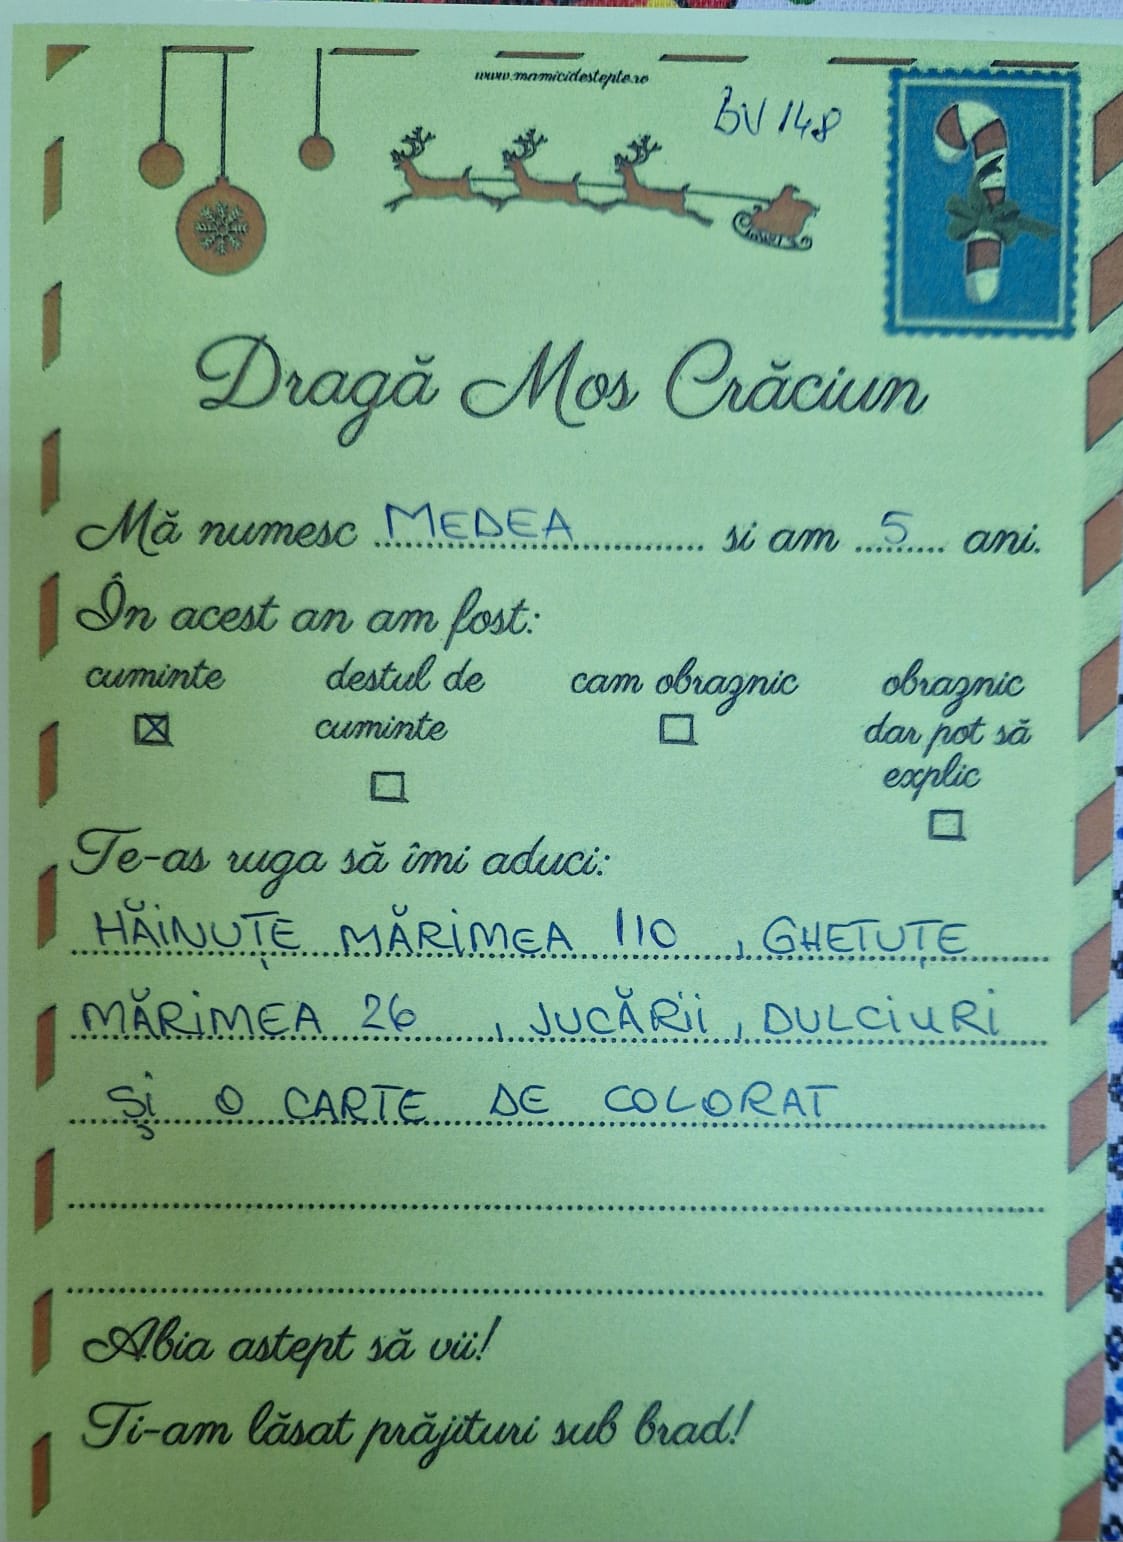 www.mamicidestepte.ro
BV 148
Dragă Mos Crăciun
Mă numesc MEDEA si am 5 ani.
În acest an am fost:
cuminte destul de cuminte cam obraznic obraznic dar pot să explic
Te-as ruga să îmi aduci:
HĂINUȚE MĂRIMEA 110 , GHETUȚE
MĂRIMEA 26 , JUCĂRII , DULCIURI
ȘI O CARTE DE COLORAT
Abia astept să vii!
Ti-am lăsat prăjituri sub brad!